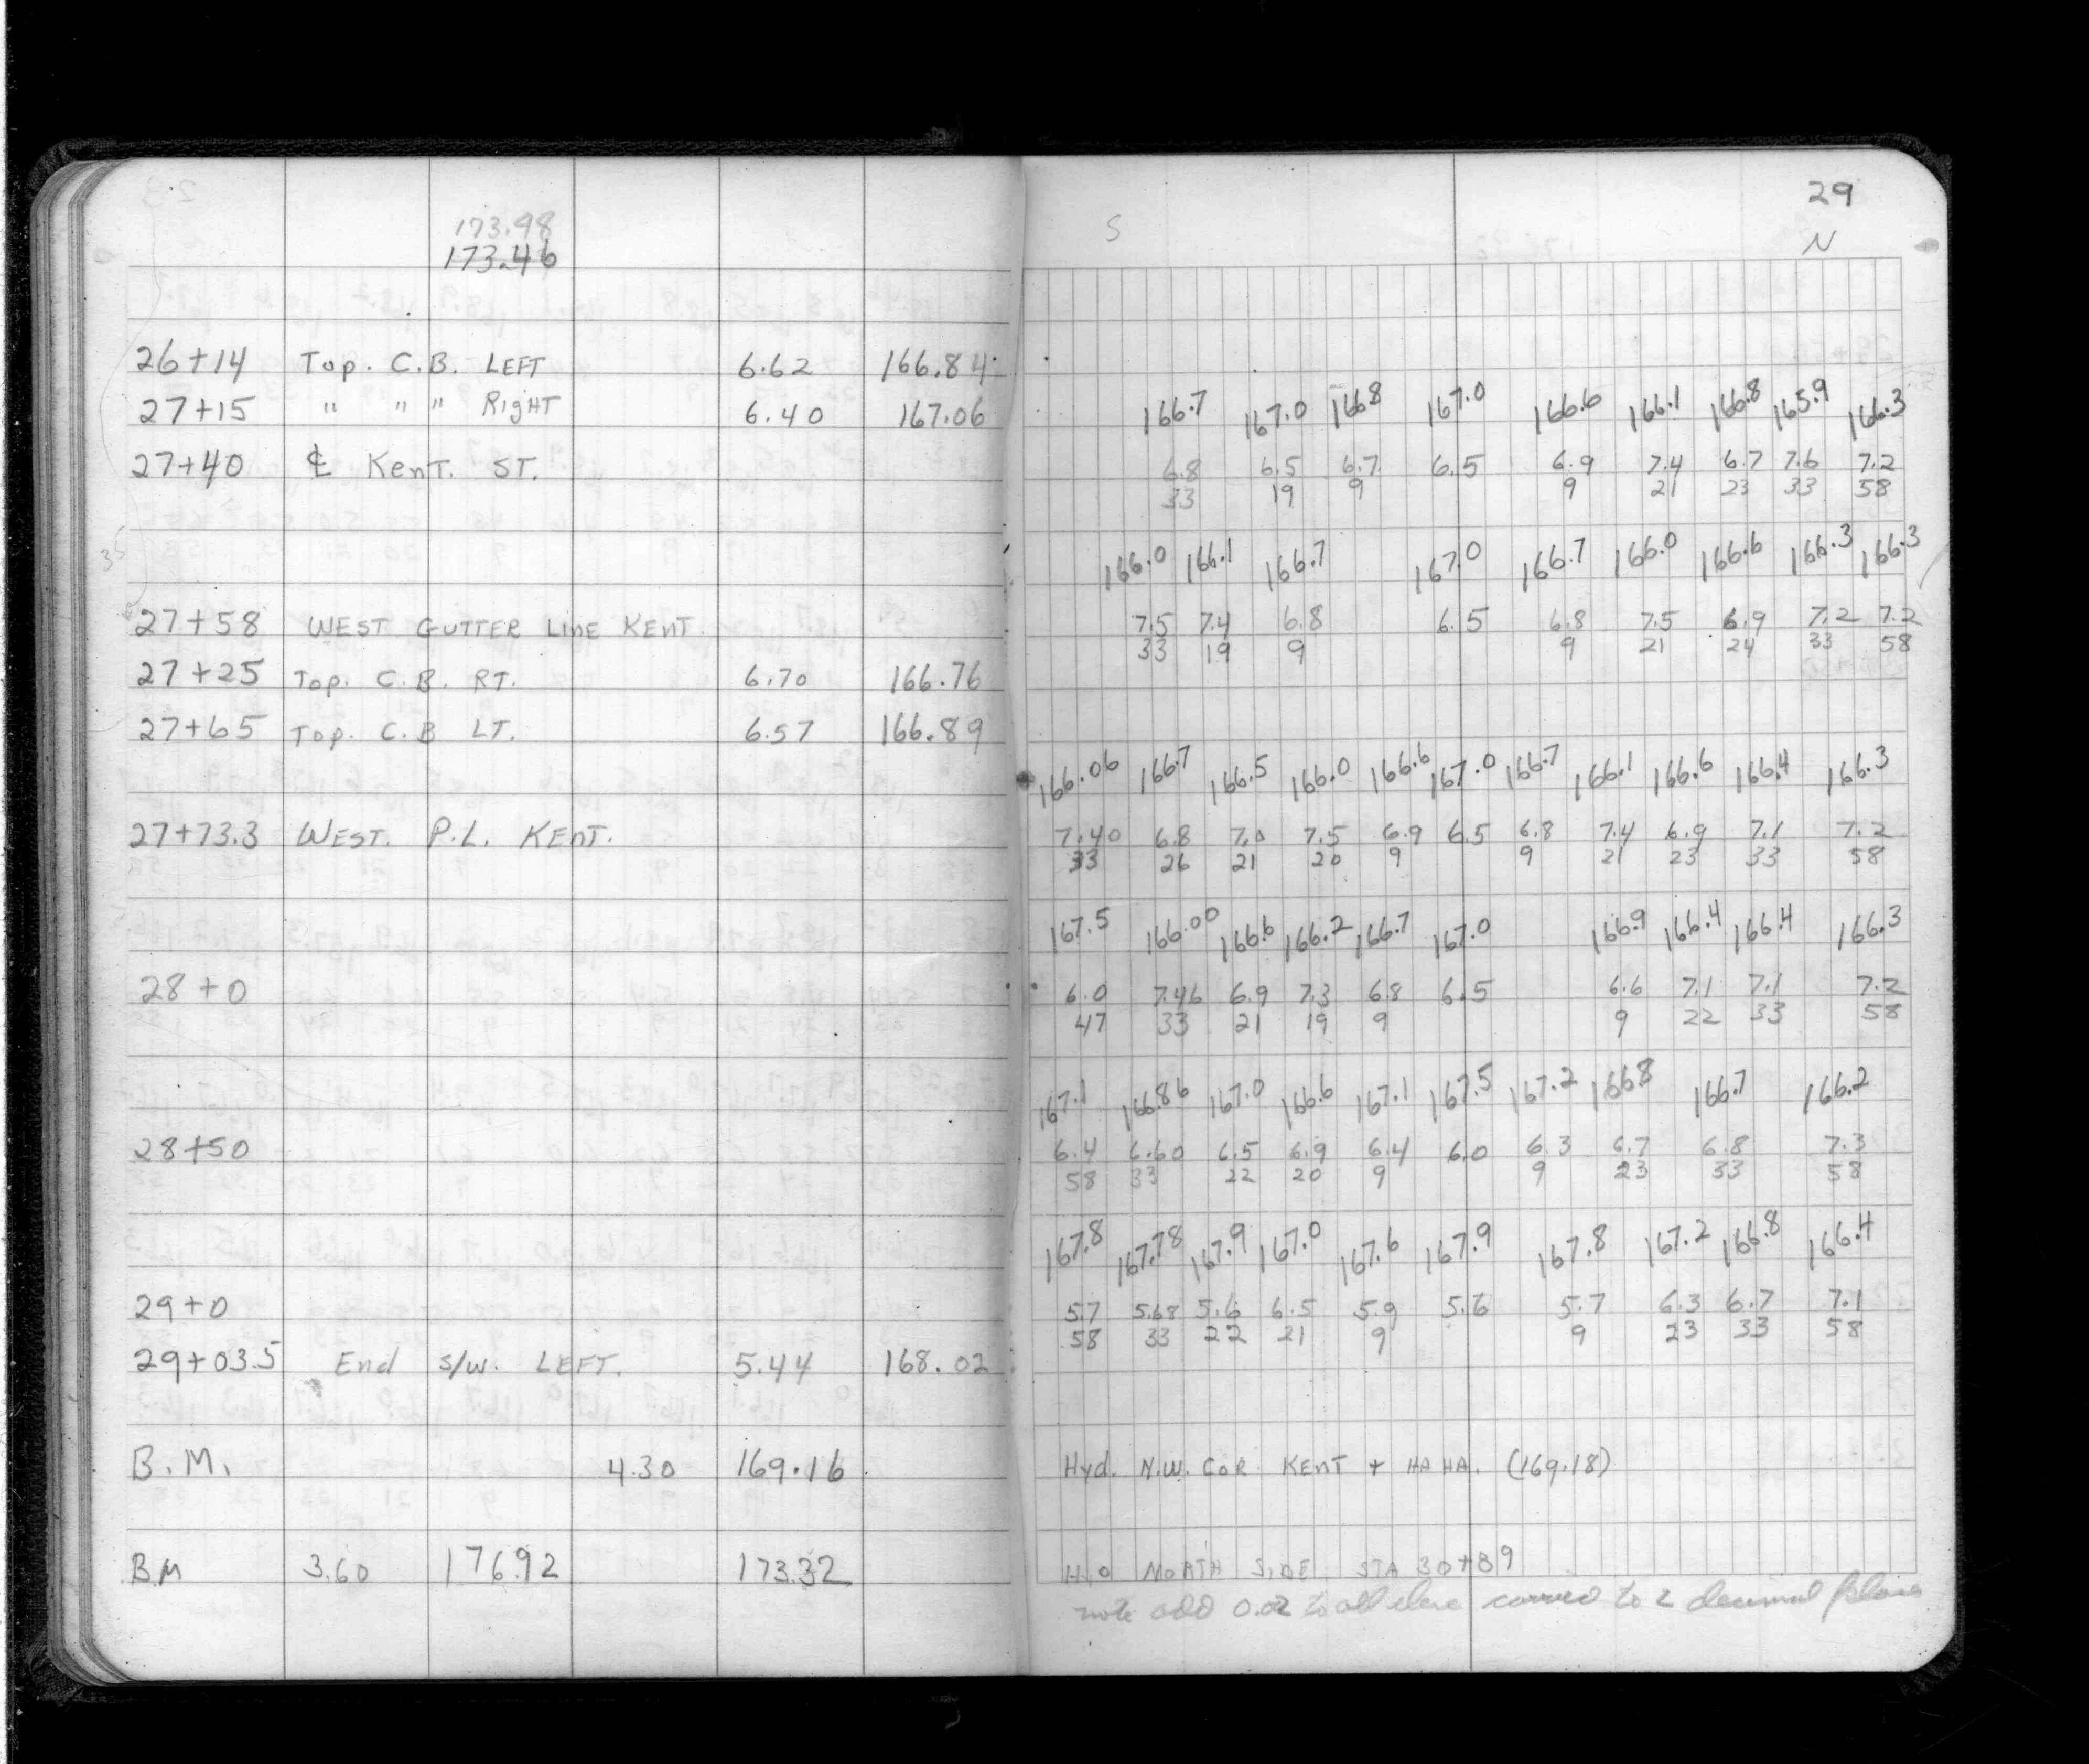 173.98
173.46
26+14 Top. C.B. LEFT 6.62 166.84
27+15 " " " RigHT 6.40 167.06
27+40 ℄ KenT. ST.
27+58 WEST GUTTER LINE KENT.
27+25 Top. C.B. RT. 6.70 166.76
27+65 Top. C.B LT. 6.57 166.89
27+73.3 WEST. P.L. KEnT.
28+0
28+50
29+0
29+03.5 End s/w. LEFT. 5.44 168.02
B.M. 4.30 169.16
BM 3.60 176.92 173.32
29
S N
166.7 167.0 166.8 167.0 166.6 166.1 166.8 165.9 166.3
6.8 6.5 6.7 6.5 6.9 7.4 6.7 7.6 7.2
33 19 9 9 21 23 33 58
166.0 166.1 166.7 167.0 166.7 166.0 166.6 166.3 166.3
7.5 7.4 6.8 6.5 6.8 7.5 6.9 7.2 7.2
33 19 9 9 21 24 33 58
166.06 166.7 166.5 166.0 166.6 167.0 166.7 166.1 166.6 166.4 166.3
7.40 6.8 7.0 7.5 6.9 6.5 6.8 7.4 6.9 7.1 7.2
33 26 21 20 9 9 21 23 33 58
167.5 166.00 166.6 166.2 166.7 167.0 166.9 166.4 166.4 166.3
6.0 7.46 6.9 7.3 6.8 6.5 6.6 7.1 7.1 7.2
47 33 21 19 9 9 22 33 58
167.1 166.86 167.0 166.6 167.1 167.5 167.2 166.8 166.7 166.2
6.4 6.60 6.5 6.9 6.4 6.0 6.3 6.7 6.8 7.3
58 33 22 20 9 9 23 33 58
167.8 167.78 167.9 167.0 167.6 167.9 167.8 167.2 166.8 166.4
5.7 5.68 5.6 6.5 5.9 5.6 5.7 6.3 6.7 7.1
58 33 22 21 9 9 23 33 58
Hyd. N.W. COR. KENT + HA HA. (169.18)
NORTH SIDE STA 30+89
note add 0.02 to all elev carried to 2 decimal places